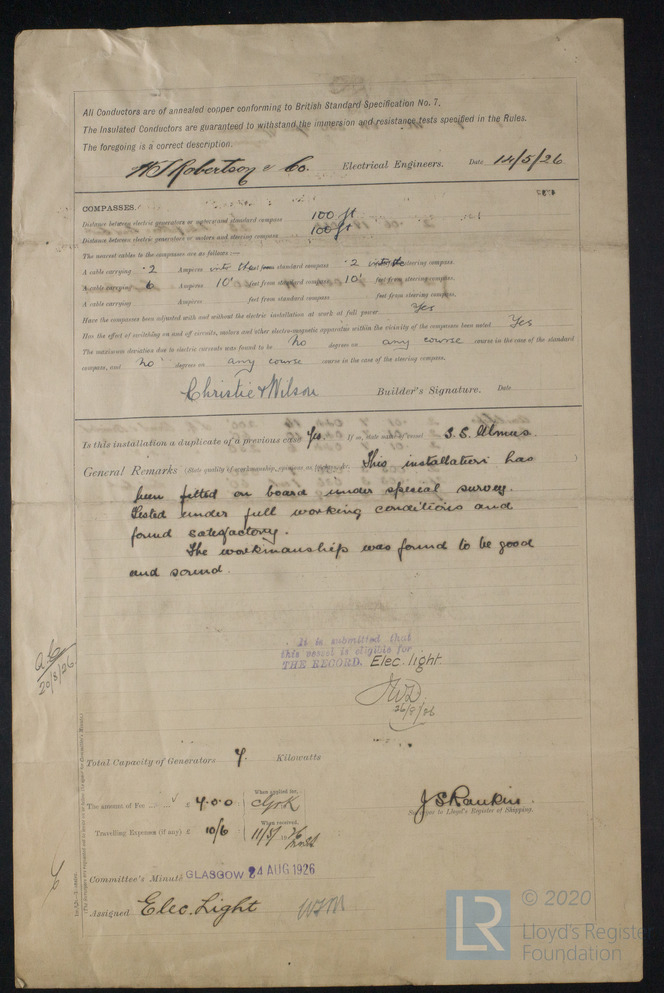 All Conductors are of annealed copper conforming to British Standard Specification No. 7.
The Insulated Conductors are guaranteed to withstand the immersion and resistance tests specified in the Rules.
The foregoing is a correct description.
Robertson & Co. Electrical Engineers. Date 14/5/26
COMPASSES.
Distance between electric generators or motors and standard compass 100 ft
Distance between electric generators or motors and steering compass 100 ft
The nearest cables to the compasses are as follows:—
A cable carrying .2 Amperes into the from standard compass .2 into the steering compass.
A cable carrying 6 Amperes 10' feet from standard compass 10' feet from steering compass.
A cable carrying Amperes feet from standard compass feet from steering compass.
Have the compasses been adjusted with and without the electric installation at work at full power Yes
Has the effect of switching on and off circuits, motors and other electro-magnetic apparatus within the vicinity of the compasses been noted Yes
The maximum deviation due to electric currents was found to be no degrees on any course course in the case of the standard
compass, and no degrees on any course course in the case of the steering compass.
Christie & Wilson Builder's Signature. Date
Is this installation a duplicate of a previous case Yes. If so, state name of vessel S.S.
General Remarks (State quality of workmanship, opinions as to This installation has
been fitted on board under special survey.
Tested under full working conditions and
found satisfactory.
The workmanship was found to be good
and sound.
It is submitted that
this vessel is eligible for
THE RECORD. Elec. light.
26/8/26
20/8/26
Total Capacity of Generators 4 Kilowatts
The amount of Fee £ 4.0.0 When applied for,
Travelling Expenses (if any) £ 10/6 When received,
J S Rankin.
Surveyor to Lloyd's Register of Shipping.
Committee's Minute GLASGOW 24 AUG 1926
Assigned Elec. Light
LR © 2020
Lloyd's Register
Foundation